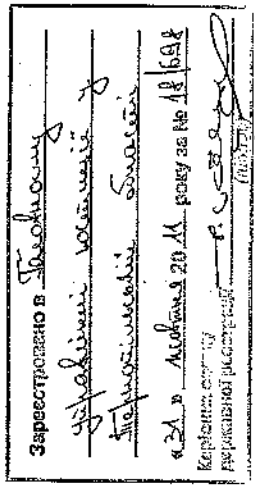 Зареєстровано в Головному
управлінні юстиції у
Тернопільській області
«31» жовтня 2011 року за № 18/698
Керівник органу
державної реєстрації
(підпис)